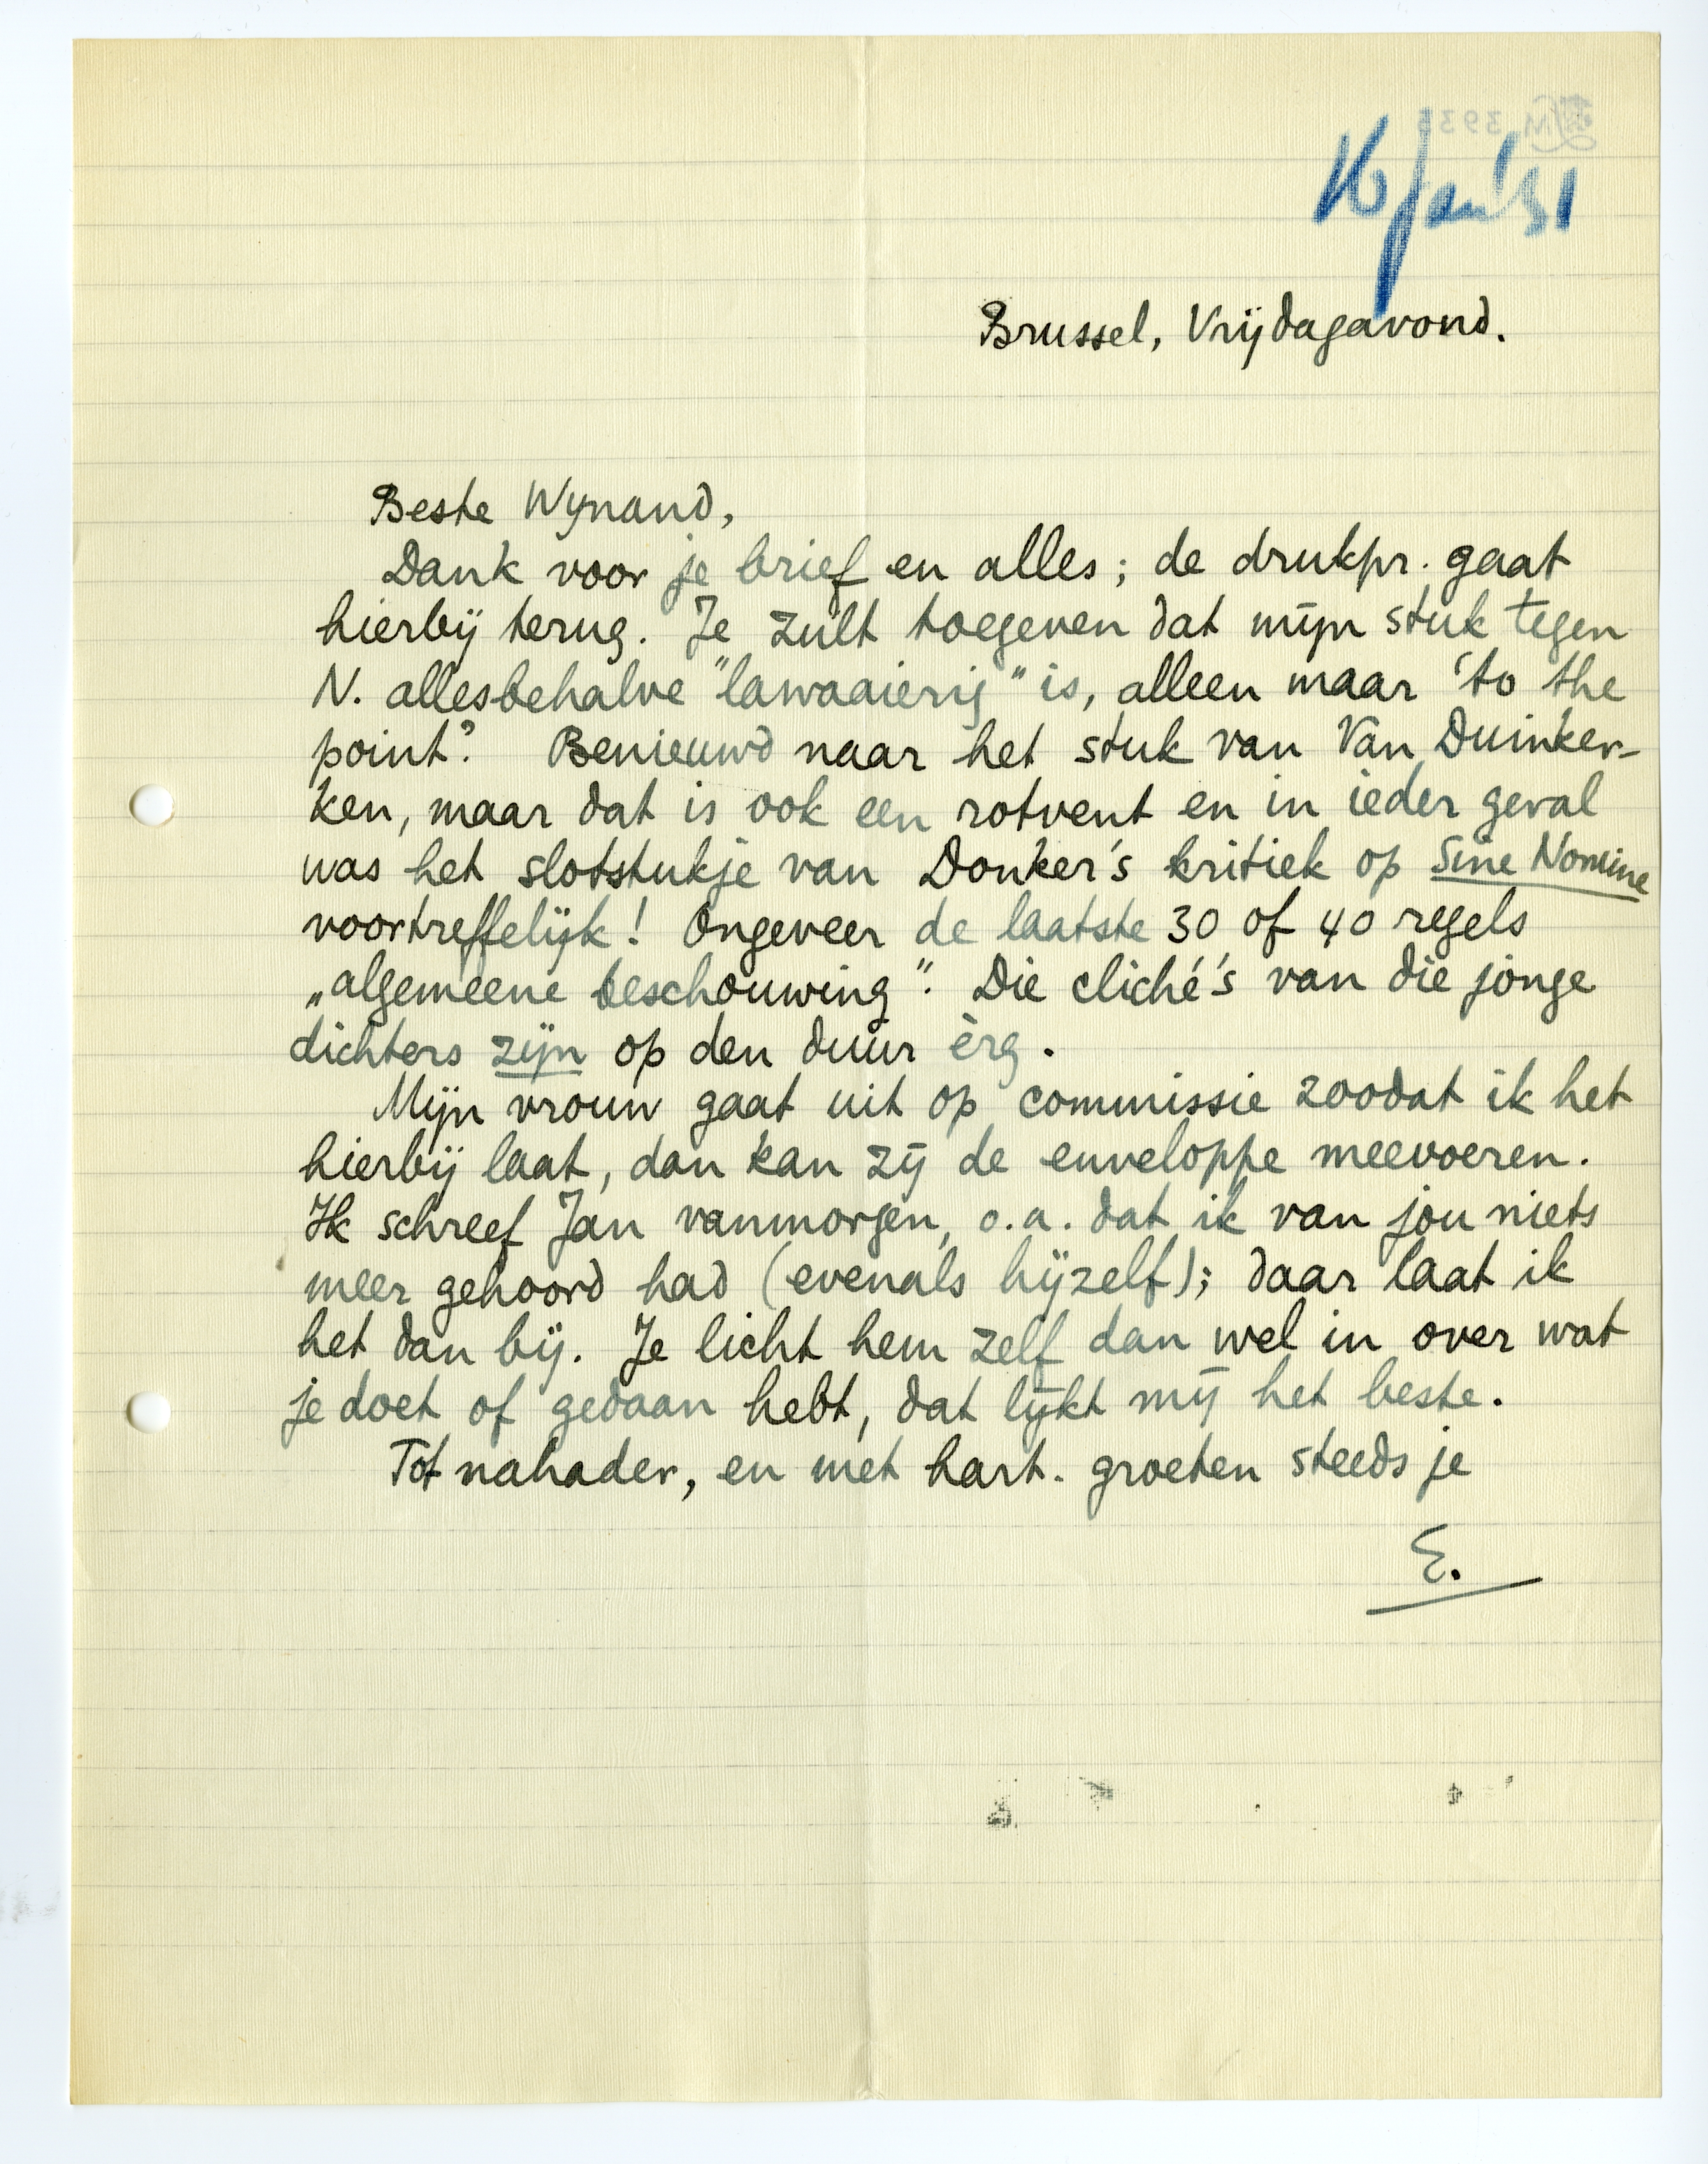 16 jan '31
Brussel, Vrijdagavond.
Beste Wynand,
Dank voor je brief en alles; de drukpr. gaat
hierbij terug. Je zult toegeven dat mijn stuk tegen
N. allesbehalve "lawaaierig" is, alleen maar 'to the
point'. Benieuwd naar het stuk van Van Duinker-
ken, maar dat is ook een rotvent en in ieder geval
was het slotstukje van Donker's kritiek op Sine Nomine
voortreffelijk! Ongeveer de laatste 30 of 40 regels
„algemeene beschouwing". Die cliché's van die jonge
dichters zijn op den duur èrg.
Mijn vrouw gaat uit op commissie zoodat ik het
hierbij laat, dan kan zij de enveloppe meevoeren.
Ik schreef Jan vanmorgen, o.a. dat ik van jou niets
meer gehoord had (evenals hijzelf); daar laat ik
het dan bij. Je licht hem zelf dan wel in over wat
je doet of gedaan hebt, dat lijkt mij het beste.
Tot nahader, en met hart. groeten steeds je
E.